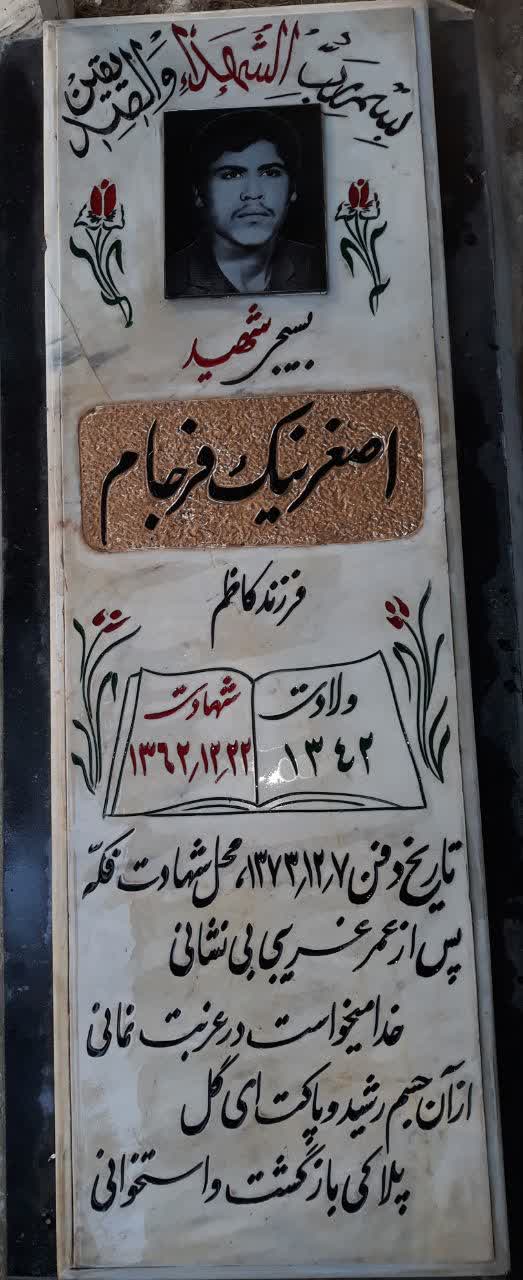 بسم رب الشهداء والصدیقین
بسیجی شهید
اصغر نیک فرجام
فرزند کاظم
ولادت
۱۳۴۲
شهادت
۱۳۶۲٫۱۲٫۲۲
تاریخ دفن ۱۳۷۳٫۱۲٫۷، محل شهادت فکّه
پس از عمر غریبی بی نشانی
خدا میخواست در غربت نمانی
از آن جسم رشید و پاکت ای گل
پلاکی بازگشت و استخوانی